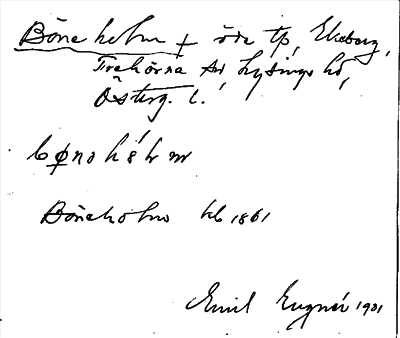 Böneholm + öde tp, Ekeberg,
Trehörna sn Lysings hd,
Österg. l.
bǿnohålm
Böneholm hb 1861
Emil 1901